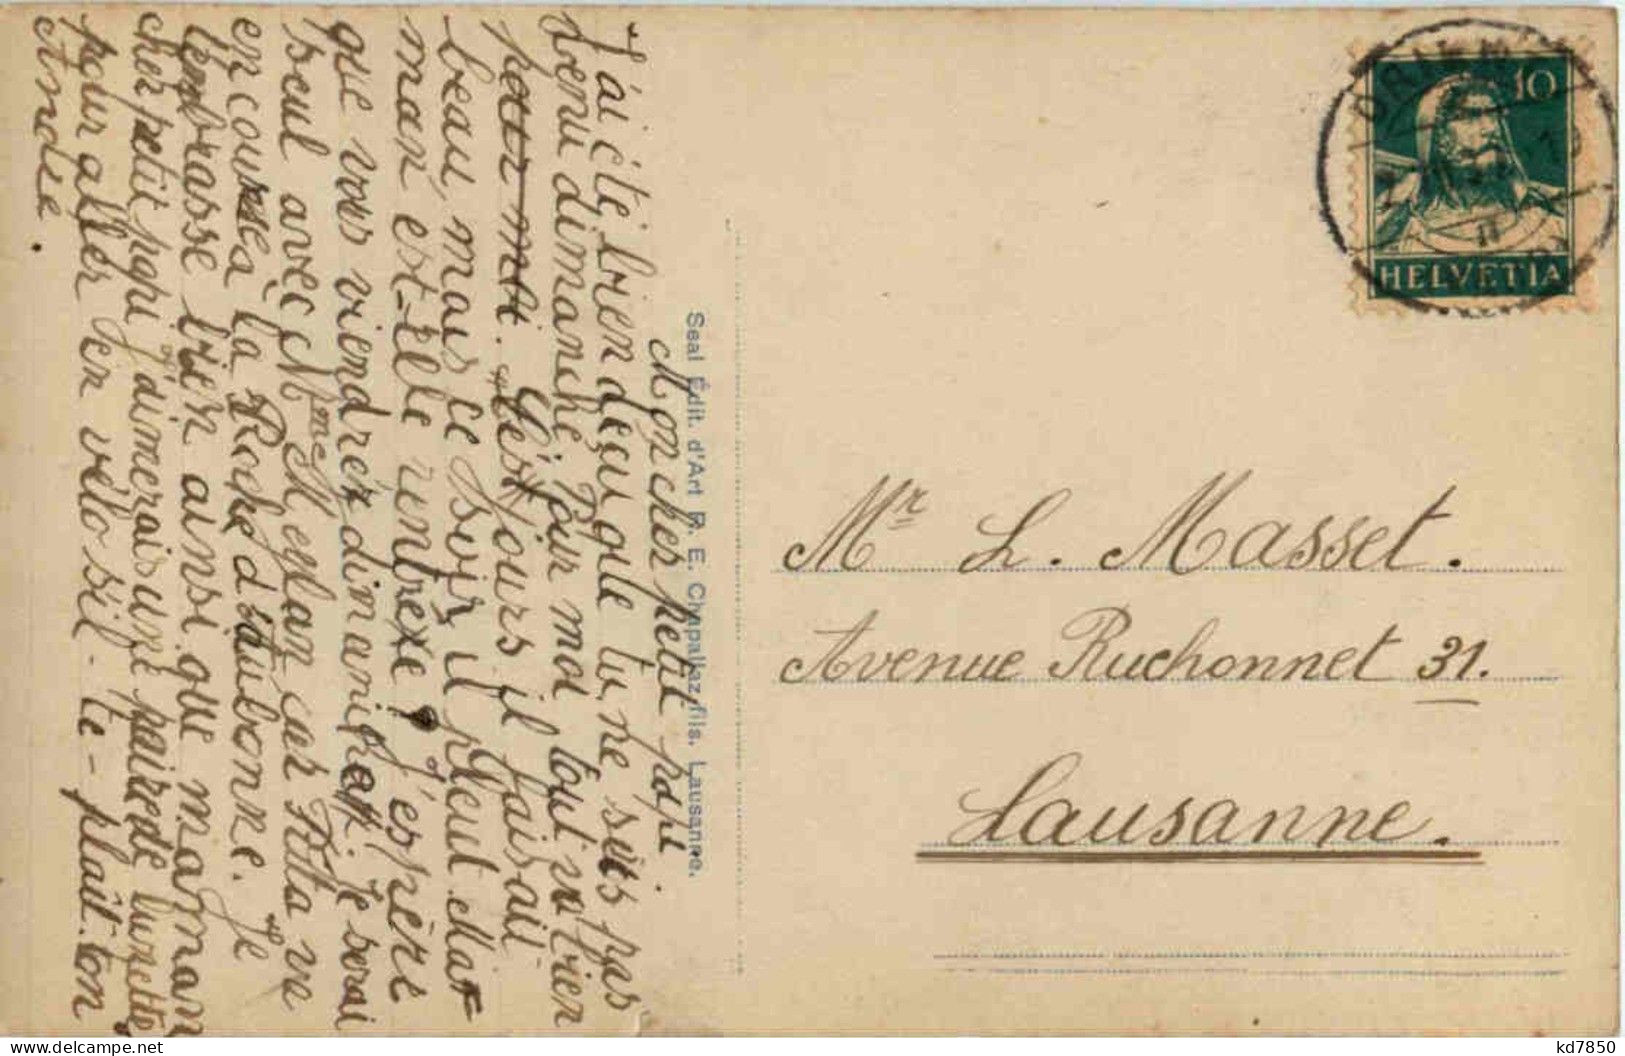 Mon cher petit papi.
J'ai été bien déçu que tu ne sois pas
venu dimanche. Pour moi tout va bien
pour moi. Ces jours il faisait
beau, mais ce soir il pleut. Ma-
man est-elle rentrée? J'espère
que vous viendrez dimanche. Je serai
seul avec Mme Meylan car Titta va
en course à la Roche d'Aubonne. Je
t'embrasse bien ainsi que maman
cher petit papi j'aimerais une paire de lunettes
pour aller en vélo s'il-te-plaît. ton
André.
Seal Édit. d'Art R. E. Chapallaz fils, Lausanne.
10
HELVETIA
Mr L. Masset.
Avenue Ruchonnet 31.
Lausanne.
kd7850